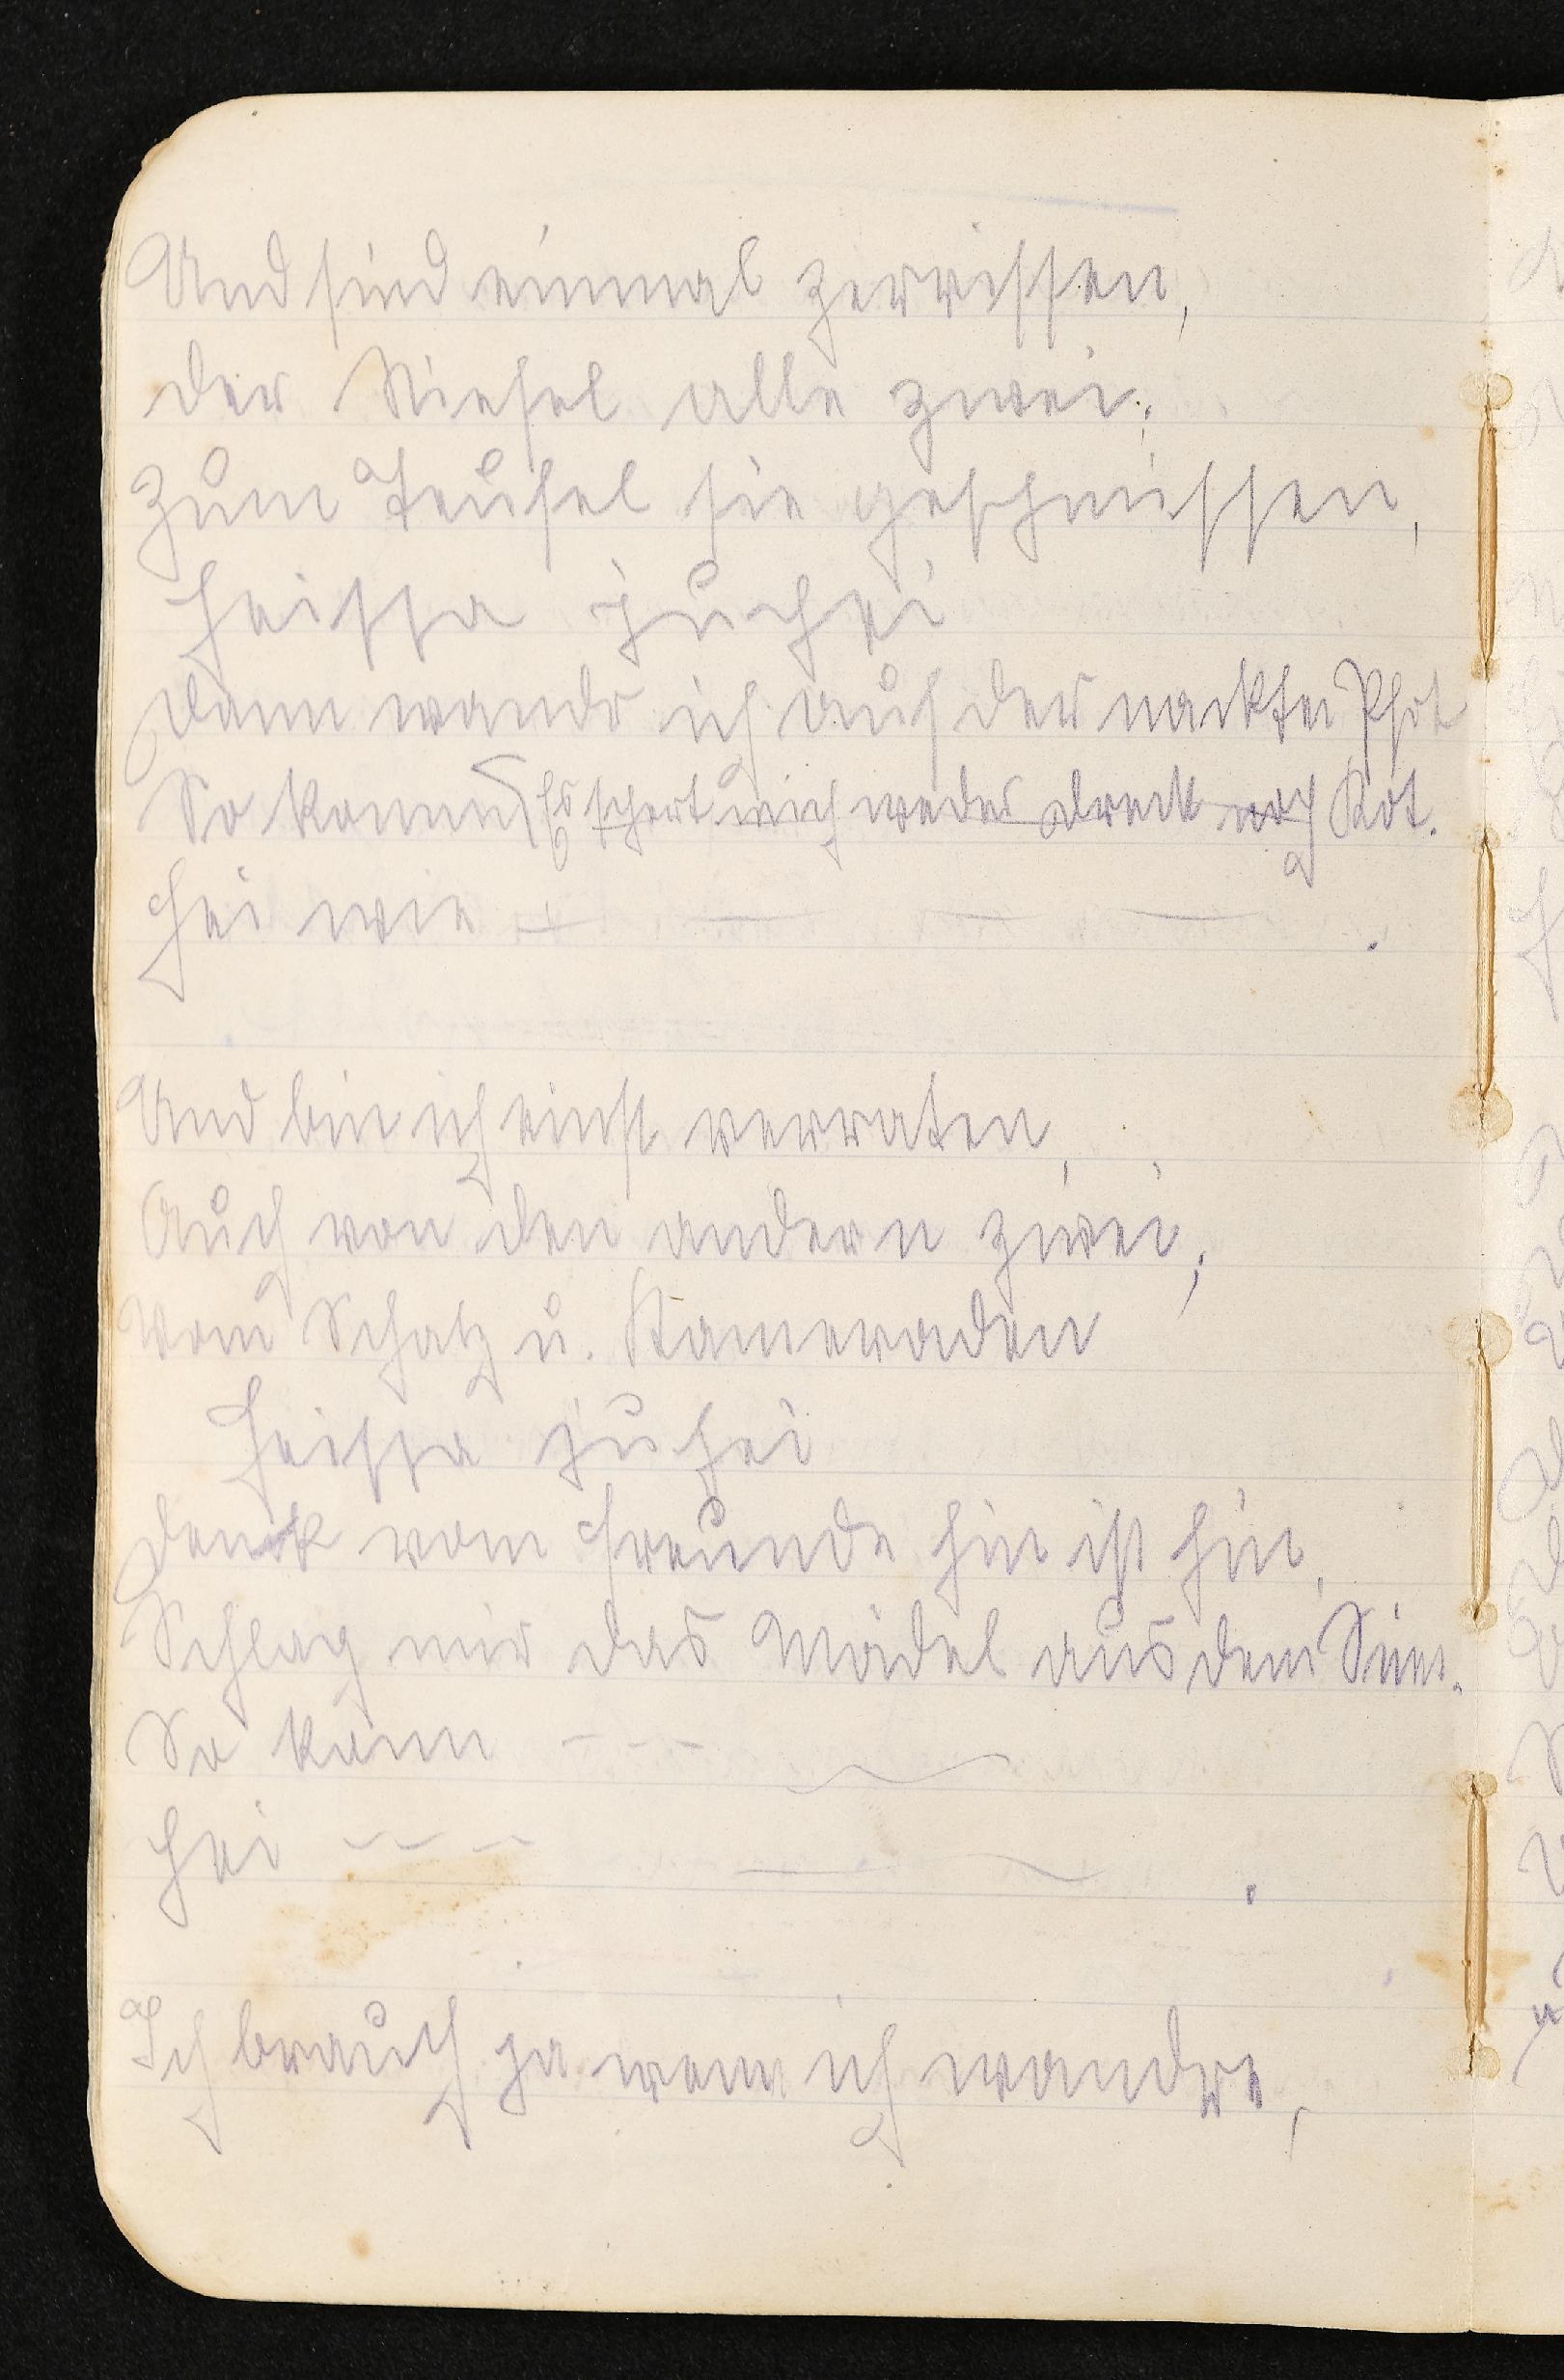 Und sind einmal zerrissen,
der Stiefel alle zwei;
zum Teufel sie geschmissen,
heissa juchhei
dann wandr ich auf der nackten Pfot
So komm Es schert mich weder Dreck noch Kot.
Hei wie — — — — .
Und bin ich einst verraten,
Auch von den andern zwei;
Vom Schatz u. Kameraden
Heissa juhei
Denk vom Freunde hin ist hin,
Schlag mir das Mädel aus dem Sinn.
So kann - - -
Hei - - - .
Ich brauch ja wenn ich wandre,